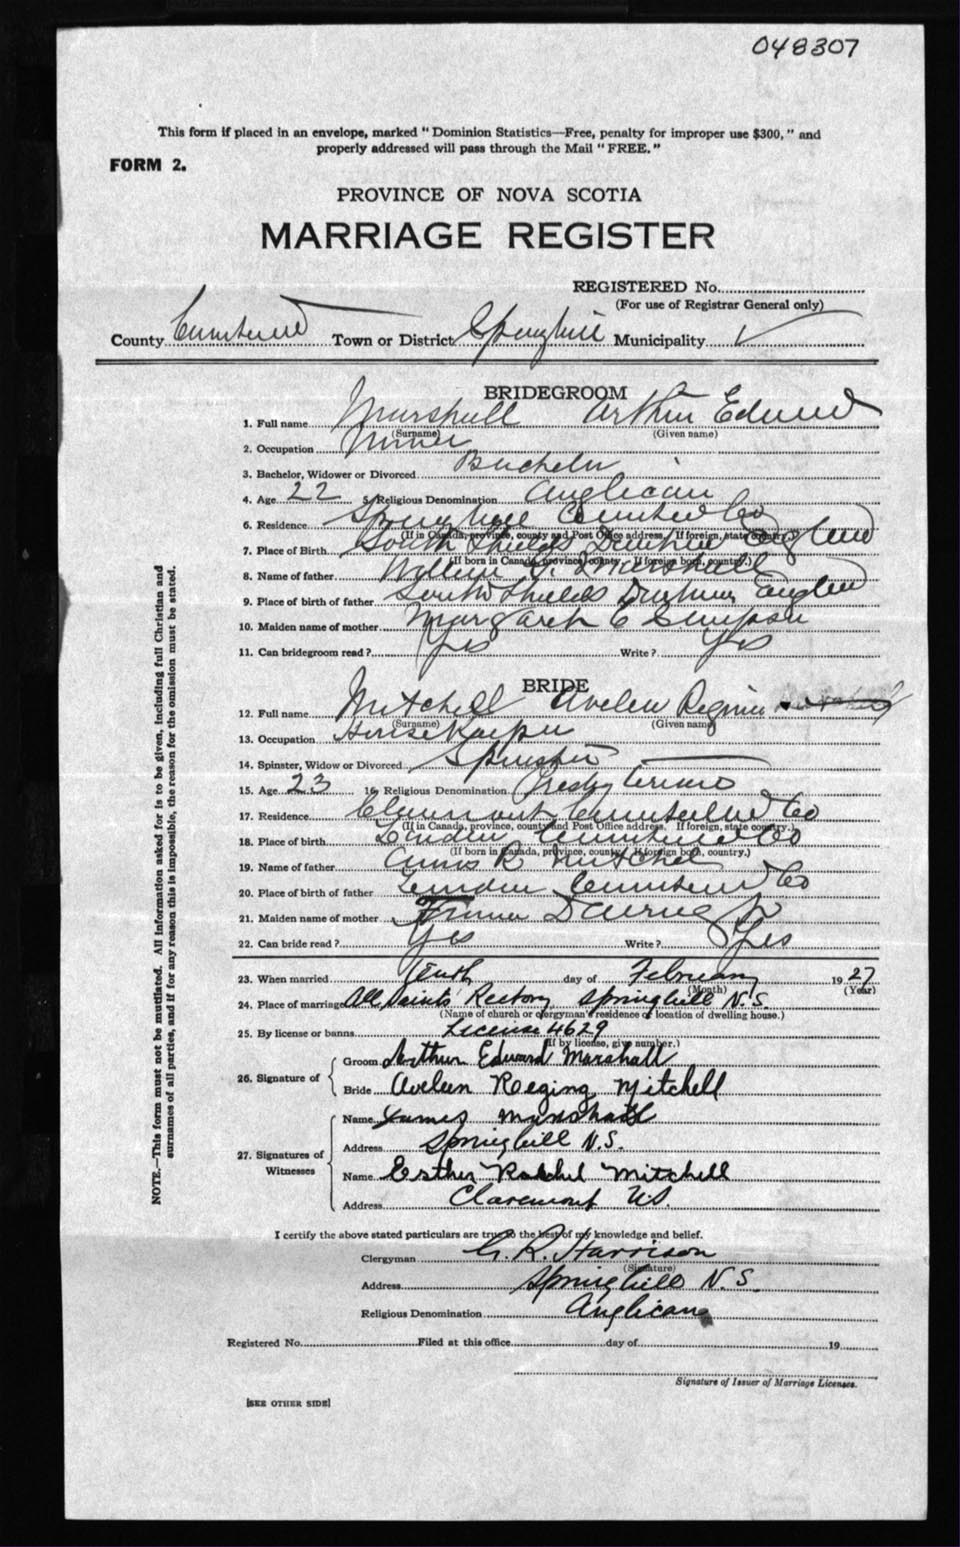 048307
This form if placed in an envelope, marked "Dominion Statistics—Free, penalty for improper use $300," and
properly addressed will pass through the Mail "FREE."
FORM 2.
PROVINCE OF NOVA SCOTIA
MARRIAGE REGISTER
REGISTERED No.
(For use of Registrar General only)
County Cumberland Town or District Springhill Municipality
BRIDEGROOM
1. Full name Marshall Arthur Edward
(Surname) (Given name)
2. Occupation Miner
3. Bachelor, Widower or Divorced Bachelor
4. Age 22 5. Religious Denomination Anglican
6. Residence Springhill Cumberland Co
(If in Canada, province, county and Post Office address. If foreign, state country.)
7. Place of Birth South Shields Durham England
(If born in Canada, province, county. If foreign born, country.)
8. Name of father William Marshall
9. Place of birth of father South Shields Durham England
10. Maiden name of mother Margaret E Simpson
11. Can bridegroom read? Yes Write? Yes
BRIDE
12. Full name Mitchell Avelen Regina
(Surname) (Given name)
13. Occupation Housekeeper
14. Spinster, Widow or Divorced Spinster
15. Age 23 16. Religious Denomination Presbyterian
17. Residence Claremont Cumberland Co
(If in Canada, province, county and Post Office address. If foreign, state country.)
18. Place of birth Linden Cumberland Co
(If born in Canada, province, county. If foreign born, country.)
19. Name of father Amos R Mitchell
20. Place of birth of father Linden Cumberland Co
21. Maiden name of mother
22. Can bride read? Yes Write? Yes
23. When married Tenth day of February 1927
(Month) (Year)
24. Place of marriage All Saints' Rectory Springhill N.S.
(Name of church or clergyman's residence or location of dwelling house.)
25. By license or banns License 4629
(If by license, give number.)
26. Signature of
Groom Arthur Edward Marshall
Bride Avelen Regina Mitchell
27. Signatures of Witnesses
Name James Marshall
Address Springhill N.S.
Name Esther Rachel Mitchell
Address Claremont N.S.
I certify the above stated particulars are true to the best of my knowledge and belief.
Clergyman G. R. Harrison
(Signature)
Address Springhill N.S.
Religious Denomination Anglican
Registered No. Filed at this office day of 19
Signature of Issuer of Marriage Licenses.
[SEE OTHER SIDE]
NOTE.—This form must not be mutilated. All information asked for is to be given, including full Christian and
surnames of all parties, and if for any reason this is impossible, the reason for the omission must be stated.